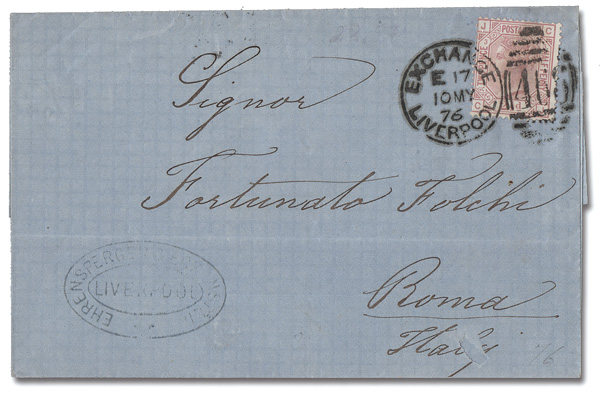 EXCHANGE
E 17
10 MY
76
LIVERPOOL
J C
POSTAGE
466
C J
Signor
Fortunato Folchi
Roma
Italy
LIVERPOOL
76